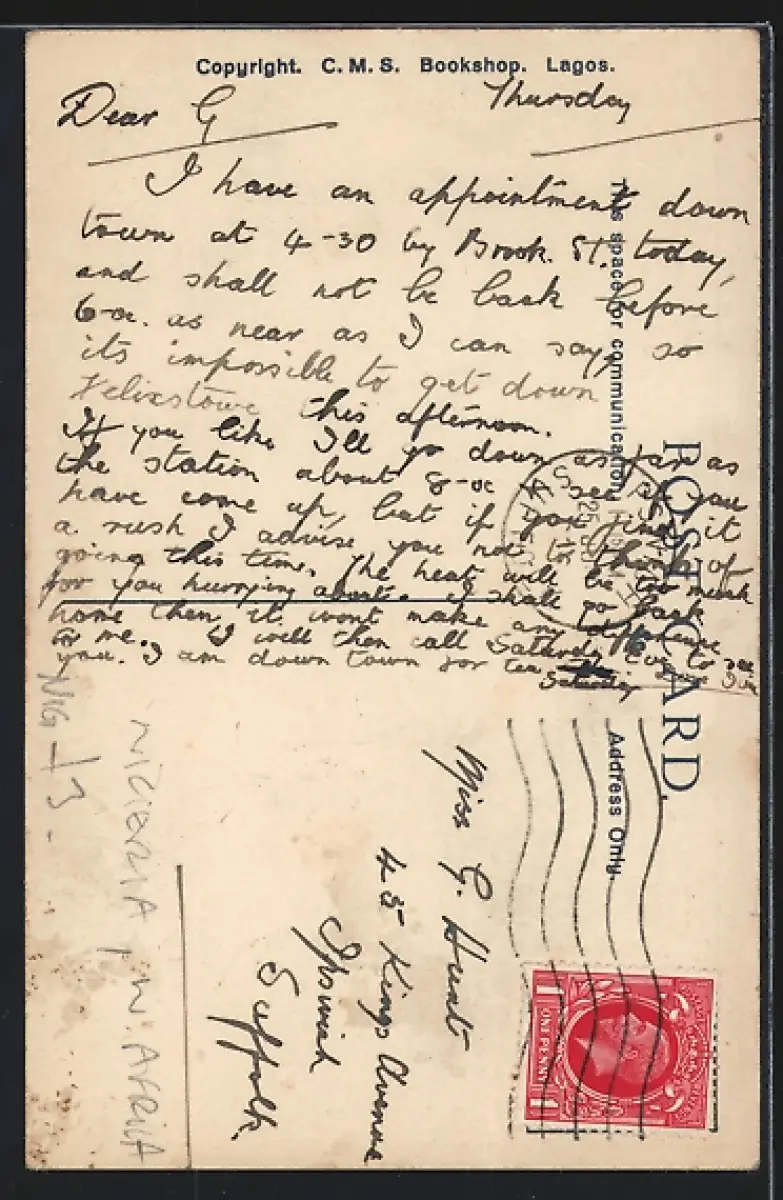 Copyright. C. M. S. Bookshop. Lagos.
Dear G
Thursday
I have an appointment down
town at 4-30 by Brook. St. today,
and shall not be back before
6-oc. as near as I can say, so
its impossible to get down
Felixstowe this afternoon.
If you like I'll go down as far as
the station about 8-oc & see if you
have come up, but if you find it
a rush I advise you not to think of
going this time. The heat will be too much
for you hurrying about. I shall go back
home then, it wont make any difference
to me. I will then call Saturday to see
you. I am down town for tea
Saturday
This space for communication.
POST CARD.
Address Only.
Miss G. Hunt
45 Kings Avenue
Ipswich
Suffolk.
ONE PENNY
NIG - 13 -
NIGERIA, W. AFRICA